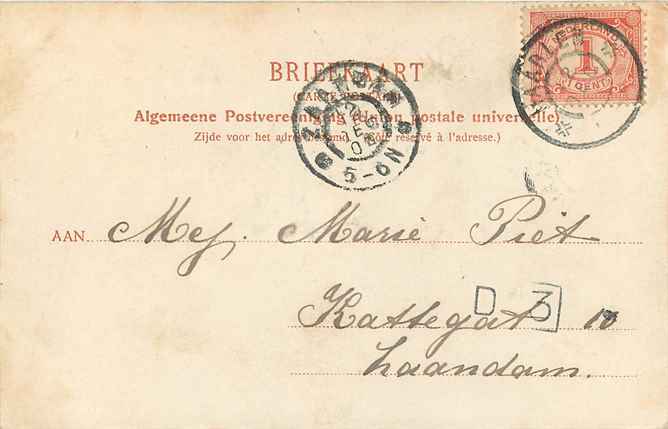 NEDERLAND
1
CENT
HAARLEM
BRIEFKAART
(CARTE POSTALE)
Algemeene Postvereeniging (Union postale universelle)
Zijde voor het adres bestemd. (Côté réservé à l'adresse.)
ZAANDAM
DEC
5-6N
AAN Mej. Marie Piet
Kattegat 10
D 3
Zaandam.